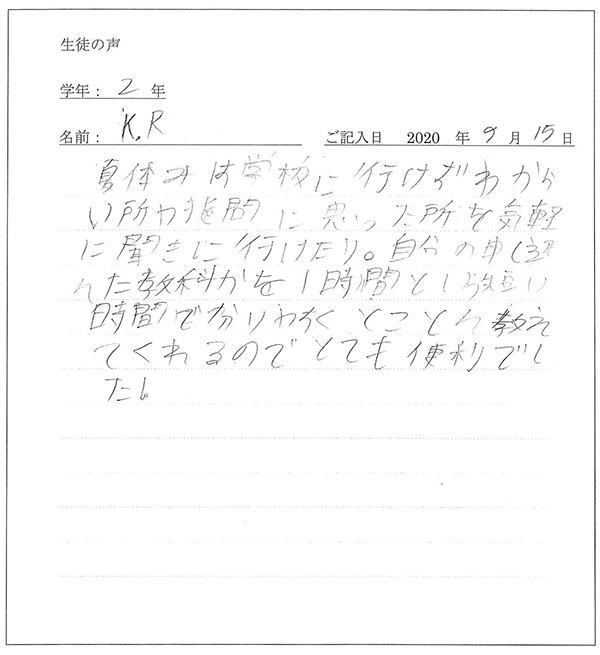 生徒の声
学年： 2 年
名前： K.R ご記入日 2020 年 9 月 15 日
夏休みは学校に行けずわから
い所や疑問に思った所を気軽
に聞きに行けたり。自分の申し込
んだ教科かを1時間という短い
時間で分りやすくとことん教え
てくれるのでとても便利でし
た。